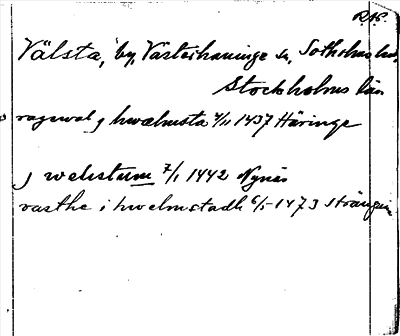 RAP.
Välsta, by, Västerhaninge sn, Sotholms hd.
Stockholms län
ragwal j hwalmsta 4/11 1437 Häringe
j welistum 7/1 1442 Nynäs
rasthe i hwelmstadh 6/5 1473 Strängnäs